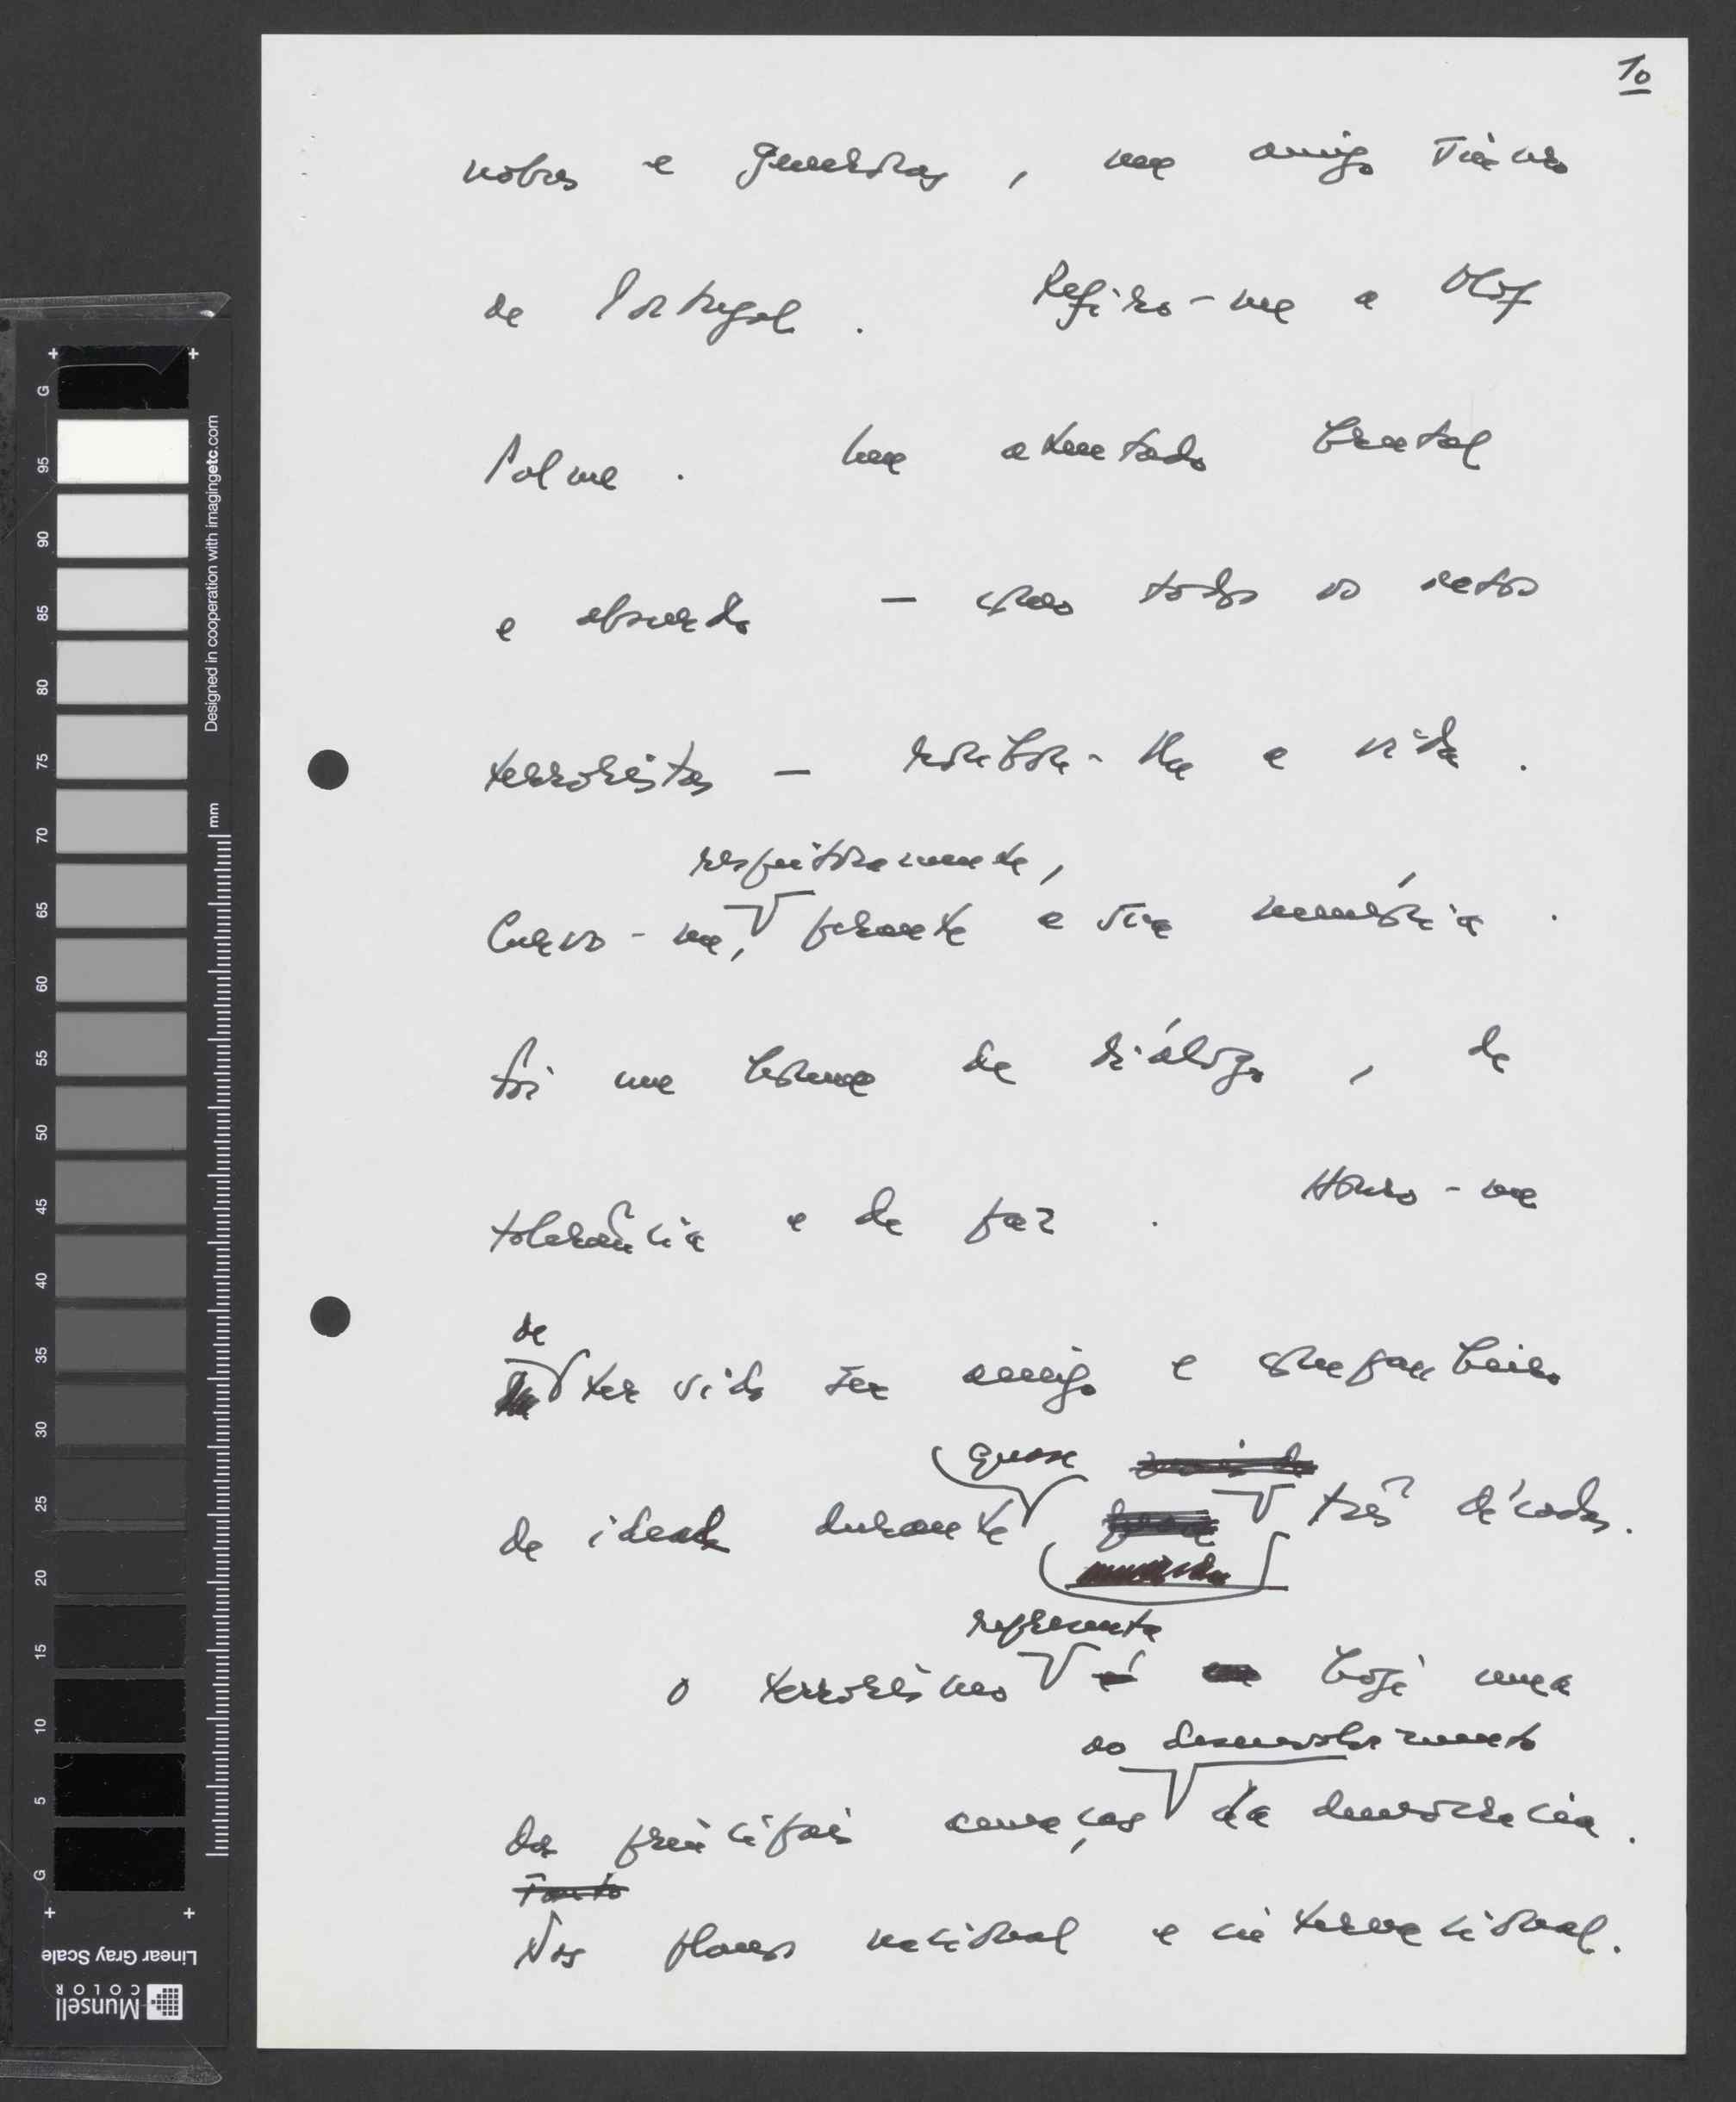 10
nobres e generosas, um amigo sincero
de Portugal. Refiro-me a Olof
Palme. Um atentado brutal
e absurdo - como todos os actos
terroristas - roubou-lhe a vida.
respeitosamente,
Curvo-me, perante a sua memória.
Foi um homem de diálogo, de
tolerância e de paz. Honro-me
de
ter sido seu amigo e companheiro
quase
de ideais durante três décadas.
representa
O terrorismo é hoje uma
ao desenvolvimento
das principais ameaças da democracia.
Tanto
Nos planos nacional e internacional.
G
95
90
85
80
75
70
65
60
55
50
45
40
35
30
25
20
15
10
5
G
Designed in cooperation with imagingetc.com
mm
Linear Gray Scale
Munsell
COLOR